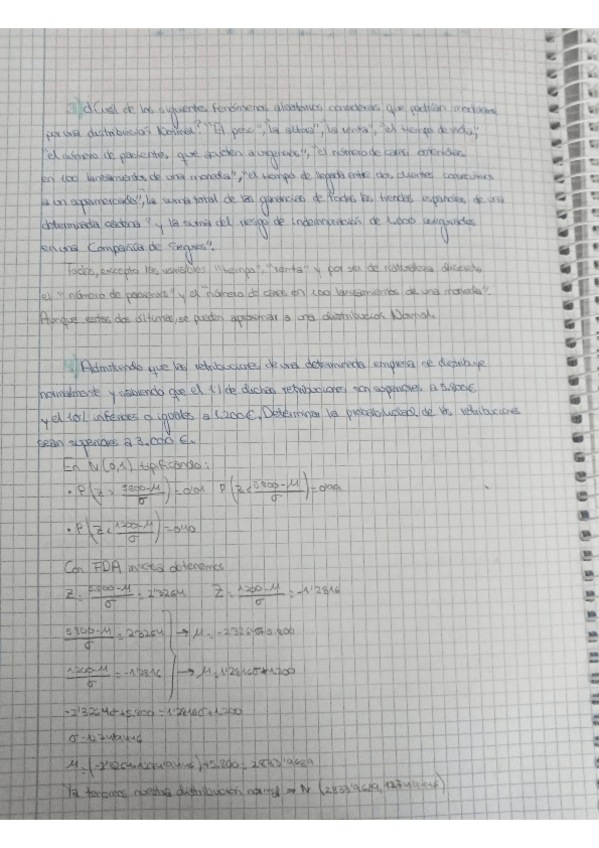 3) ¿Cual de los siguientes fenómenos aleatorios consideras que podrían modelizarse
por una distribución Normal? "El peso", "la altura", "la renta", "el tiempo de vida",
"el número de pacientes que acuden a urgencias", "el número de caras obtenidas
en 100 lanzamientos de una moneda", "el tiempo de llegada entre dos clientes consecutivos
a un supermercado", "la suma total de las ganancias de todas las tiendas españolas de una
determinada cadena" y la suma del riesgo de indemnización de 1.000 asegurados
en una Compañía de Seguros".
Todos, excepto las variables "tiempo", "renta" y por ser de naturaleza discreta
el "número de pacientes" y el "número de caras en 100 lanzamientos de una moneda".
Aunque estas dos últimas, se pueden aproximar a una distribución Normal.
4) Admitiendo que las retribuciones de una determinada empresa se distribuye
normalmente y sabiendo que el 1% de dichas retribuciones son superiores a 5.800€
y el 10% inferiores o iguales a 1.200€. Determinar la probabilidad de las retribuciones
sean superiores a 3.000 €.
En N(0,1) tipificando:
• P(Z > 5800-M/σ) = 0'01 P(Z < 5800-M/σ) = 0'99
• P(Z < 1200-M/σ) = 0'10
Con FDA inversa obtenemos
Z = 5.800-M/σ = 2'3264 Z = 1200-M/σ = -1'2816
5800-M/σ = 2'3264 → M = -2'3264σ+5.800
1200-M/σ = -1'2816 → M = 1'2816σ+1.200
-2'3264σ+5.800 = 1'2816σ+1.200
σ=1274'9446
M = (-2'3264·1274'9446)+5.800 = 2833'9689
Ya tenemos nuestra distribución normal → N (2833'9689, 1274'9446)